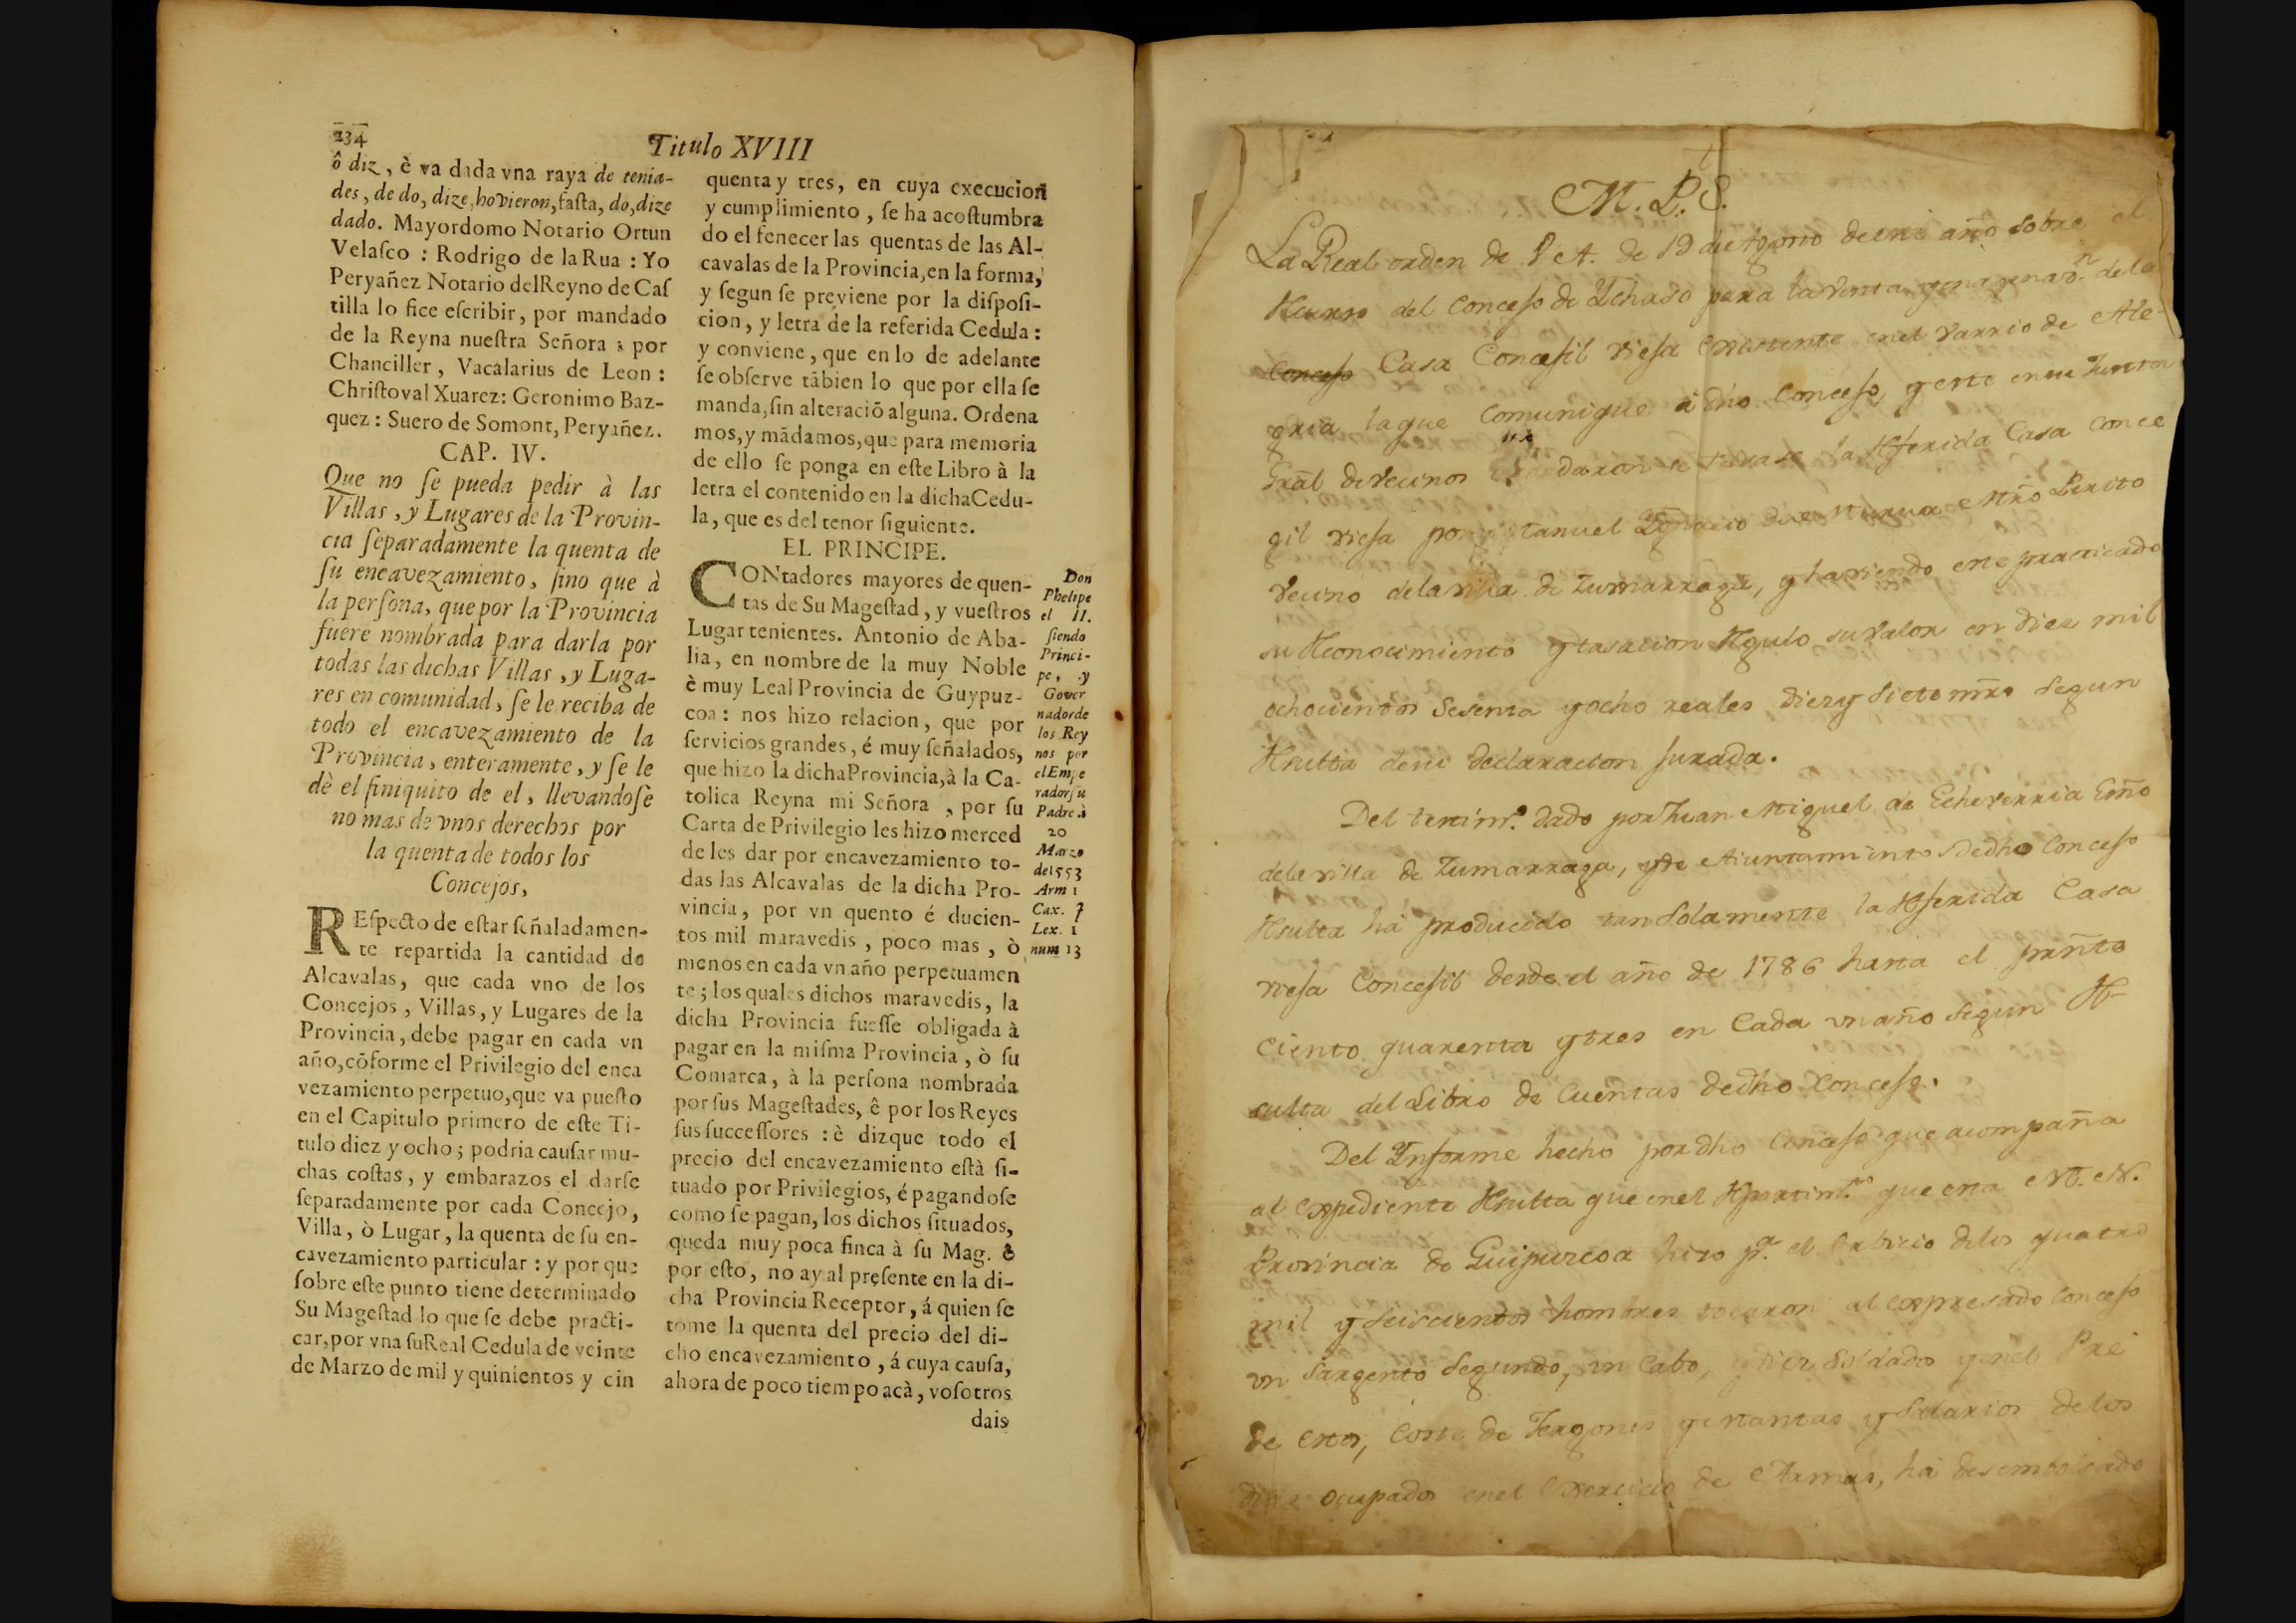 234
Titulo XVIII
ô diz, è va dada vna raya de tenia-
des, de do, dize, hovieron, fasta, do, dize
dado. Mayordomo Notario Ortun
Velasco : Rodrigo de la Rua : Yo
Peryañez Notario delReyno de Cas
tilla lo fice escribir, por mandado
de la Reyna nuestra Señora ; por
Chanciller, Vacalarius de Leon :
Christoval Xuarez: Geronimo Baz-
quez : Suero de Somont, Peryañez.
CAP. IV.
Que no se pueda pedir à las
Villas, y Lugares de la Provin-
cia separadamente la quenta de
su encavezamiento, sino que à
la persona, que por la Provincia
fuere nombrada para darla por
todas las dichas Villas, y Luga-
res en comunidad, se le reciba de
todo el encavezamiento de la
Provincia, enteramente, y se le
dè el finiquito de el, llevandose
no mas de vnos derechos por
la quenta de todos los
Concejos,
REspecto de estar señaladamen-
te repartida la cantidad de
Alcavalas, que cada vno de los
Concejos, Villas, y Lugares de la
Provincia, debe pagar en cada vn
año, cõforme el Privilegio del enca
vezamiento perpetuo, que va puesto
en el Capitulo primero de este Ti-
tulo diez y ocho; podria causar mu-
chas costas, y embarazos el darse
separadamente por cada Concejo,
Villa, ò Lugar, la quenta de su en-
cavezamiento particular : y por que
sobre este punto tiene determinado
Su Magestad lo que se debe practi-
car, por vna suReal Cedula de veinte
de Marzo de mil y quinientos y cin
quenta y tres, en cuya execucion
y cumplimiento, se ha acostumbra
do el fenecer las quentas de las Al-
cavalas de la Provincia, en la forma,
y segun se previene por la disposi-
cion, y letra de la referida Cedula :
y conviene, que en lo de adelante
se observe tãbien lo que por ella se
manda, sin alteraciõ alguna. Ordena
mos, y mãdamos, que para memoria
de ello se ponga en este Libro à la
letra el contenido en la dichaCedu-
la, que es del tenor siguiente.
EL PRINCIPE.
CONtadores mayores de quen-
tas de Su Magestad, y vuestros
Lugar tenientes. Antonio de Aba-
lia, en nombre de la muy Noble
è muy Leal Provincia de Guypuz-
coa : nos hizo relacion, que por
servicios grandes, é muy señalados,
que hizo la dichaProvincia, à la Ca-
tolica Reyna mi Señora, por su
Carta de Privilegio les hizo merced
de les dar por encavezamiento to-
das las Alcavalas de la dicha Pro-
vincia, por vn quento é ducien-
tos mil maravedis, poco mas, ò
menos en cada vn año perpetuamen
te ; los quales dichos maravedis, la
dicha Provincia fuesse obligada à
pagar en la misma Provincia, ò su
Comarca, à la persona nombrada
por sus Magestades, ê por los Reyes
sus successores : è dizque todo el
precio del encavezamiento està si-
tuado por Privilegios, é pagandose
como se pagan, los dichos situados,
queda muy poca finca à su Mag. ê
por esto, no ay al presente en la di-
cha Provincia Receptor, á quien se
tome la quenta del precio del di-
cho encavezamiento, á cuya causa,
ahora de poco tiempo acà, vosotros
dais
Don
Phelipe
el II.
siendo
Princi-
pe, y
Gover
nadorde
los Rey
nos por
elEmpe
radorsu
Padre à
20
Marzo
de1553
Arm 1
Cax. 7
Lex. 1
num 13
M. P. S.
La Real orden de V. A. de 19 de Agosto de este año sobre el
Recurso del Concejo de Ychaso para la venta, y enagenaon. de la
Concejo Casa Concejil viesa existente en el Varrio de Ale-
gria la que Comunique à dho Concejo, y este en su Junta
Gral de vecinos daron se tasase la Referida Casa Conce
gil viesa por Manuel Ygnacio de Murua Mro Perito
vecino de la villa de Zumarraga, y haviendo este practicado
su Reconocimiento y tasacion Regulo su valor en diez mil
ochocientos sesenta y ocho reales diez y siete mrs segun
Resulta de su declaracion Jurada.
Del testimo. dado por Juan Miguel de Echeverria Esno
de la villa de Zumarraga, y de Aiuntamiento de dho Concejo
Resulta ha producido tan solamente la Referida Casa
viesa Concejil desde el año de 1786 hasta el preste
ciento quarenta y tres en Cada un año segun Re-
sulta del Libro de Cuentas de dho Concejo.
Del Ynforme hecho por dho Concejo que acompaña
al expediente Resulta que en el Repartimto. que esta M. N.
Provincia de Guipuzcoa hizo pa. el servicio de los quatro
mil y seiscientos hombres tocaron al expresado Concejo
un Sargento segundo, un Cabo, y diez soldados y en el Pre
de estos, Coste de Jergones y mantas y salarios de los
dias ocupados en el Exercicio de Armas, ha desembolsado